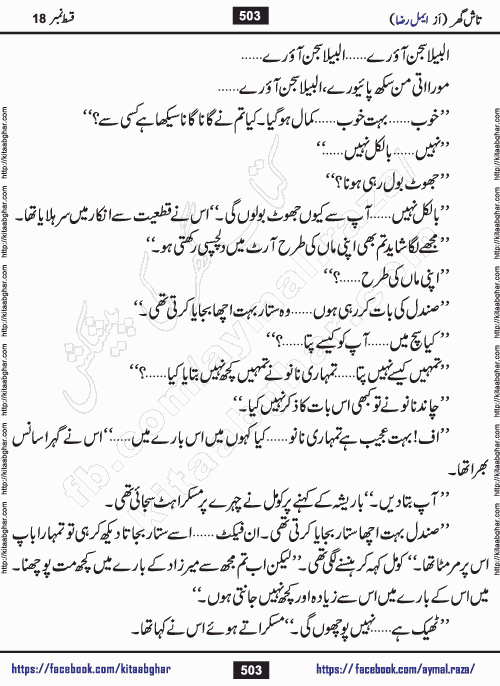 تاش گھر (از ایمل رضا) 503 قسط نمبر 18
البیلا سجن آؤ رے......البیلا سجن آؤ رے......
مورا اتی من سکھ پائیو رے، البیلا سجن آؤ رے......
’’خوب......بہت خوب......کمال ہو گیا۔ کیا تم نے گانا گانا سیکھا ہے کسی سے؟‘‘
’’نہیں......بالکل نہیں......‘‘
’’جھوٹ بول رہی ہونا؟‘‘
’’بالکل نہیں......آپ سے کیوں جھوٹ بولوں گی۔‘‘ اس نے قطعیت سے انکار میں سر ہلایا تھا۔
’’مجھے لگا شاید تم بھی اپنی ماں کی طرح آرٹ میں دلچسپی رکھتی ہو۔‘‘
’’اپنی ماں کی طرح......؟‘‘
’’صندل کی بات کر رہی ہوں......وہ ستار بہت اچھا بجایا کرتی تھی۔‘‘
’’کیا سچ میں......آپ کو کیسے پتا......؟‘‘
’’تمہیں کیسے نہیں پتا......تمہاری نانو نے تمہیں کچھ نہیں بتایا کیا......؟‘‘
’’چاند نانو نے تو کبھی اس بات کا ذکر نہیں کیا۔‘‘
’’اف! بہت عجیب ہے تمہاری نانو......کیا کہوں میں اس بارے میں......‘‘ اس نے گہرا سانس
بھرا تھا۔
’’آپ بتا دیں۔‘‘ باریشہ کے کہنے پر کومل نے چہرے پر مسکراہٹ سجائی تھی۔
’’صندل بہت اچھا ستار بجایا کرتی تھی۔ ان فیکٹ......اسے ستار بجاتا دیکھ کر ہی تو تمہارا باپ
اس پر مر مٹا تھا۔‘‘ کومل کہہ کر ہنسنے لگی تھی۔ ’’لیکن اب تم مجھ سے میرزاد کے بارے میں کچھ مت پوچھنا۔
میں اس کے بارے میں اس سے زیادہ اور کچھ نہیں جانتی ہوں۔‘‘
’’ٹھیک ہے......نہیں پوچھوں گی۔‘‘ مسکراتے ہوئے اس نے کہا تھا۔
https://facebook.com/kitaabghar 503 https://facebook.com/aymal.raza/
http://kitaabghar.com http://kitaabghar.com http://kitaabghar.com http://kitaabghar.com http://kitaabghar.com http://kitaabghar.com
http://kitaabghar.com http://kitaabghar.com http://kitaabghar.com http://kitaabghar.com http://kitaabghar.com http://kitaabghar.com
fb.com/aymalraza/
kitaabghar.com